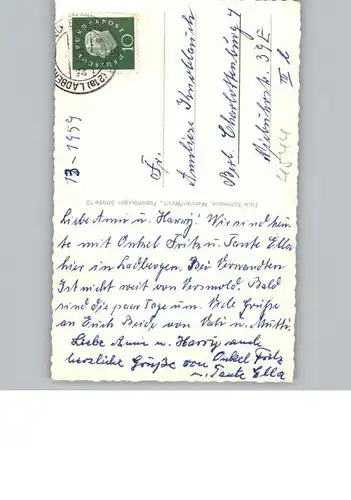 DEUTSCHE BUNDESPOST
10
(21a) LADBERGEN
13-1959
Fr.
Anneliese Knobloch
Berl. Charlottenburg 7
39
II
4544
Foto Kuhlmann, Münster/Westf., Papenburger Straße 12
Liebe Anni u. Harry! Wir sind heu-
te mit Onkel Fritz u. Tante Ella
hier in Ladbergen. Bei Verwandten
Ist nicht weit von Versmold. Bald
sind die paar Tage um. Viele Grüße
an Euch Beide von Vati u. Mutti.
Liebe Anni u. Harry auch
herzliche Grüße von Onkel Fritz
u. Tante Ella